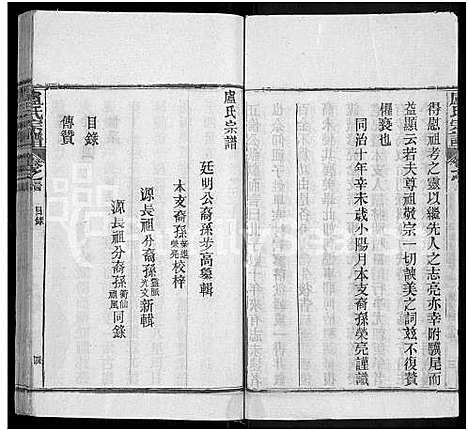 得慰祖考之靈以繼先人之志亮亦幸附驥尾而
益顯云若夫尊祖敬宗一切諛美之詞茲不復贅
權褻也
同治十年辛未歲小陽月本支裔孫榮亮謹識
盧氏宗譜
廷明公裔孫步高纂輯
本支裔孫榮雄榮亮校梓
源長祖分裔孫光文新輯
源長祖分裔孫衡仙禎鳳同錄
目錄
傳贊
盧氏宗譜
目錄
盧氏宗譜